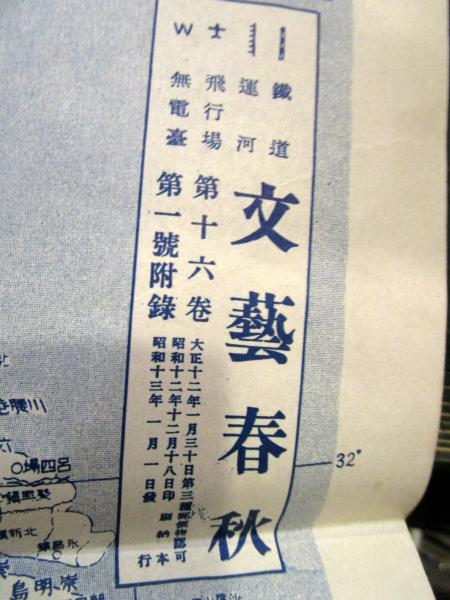 鐵道
運河
飛行場
W 無電臺
文藝春秋
第十六卷
第一號附錄
大正十二年一月三十日第三種郵便物認可
昭和十二年十二月十八日印刷納本
昭和十三年一月一日發行
32°
呂四場
崇明島